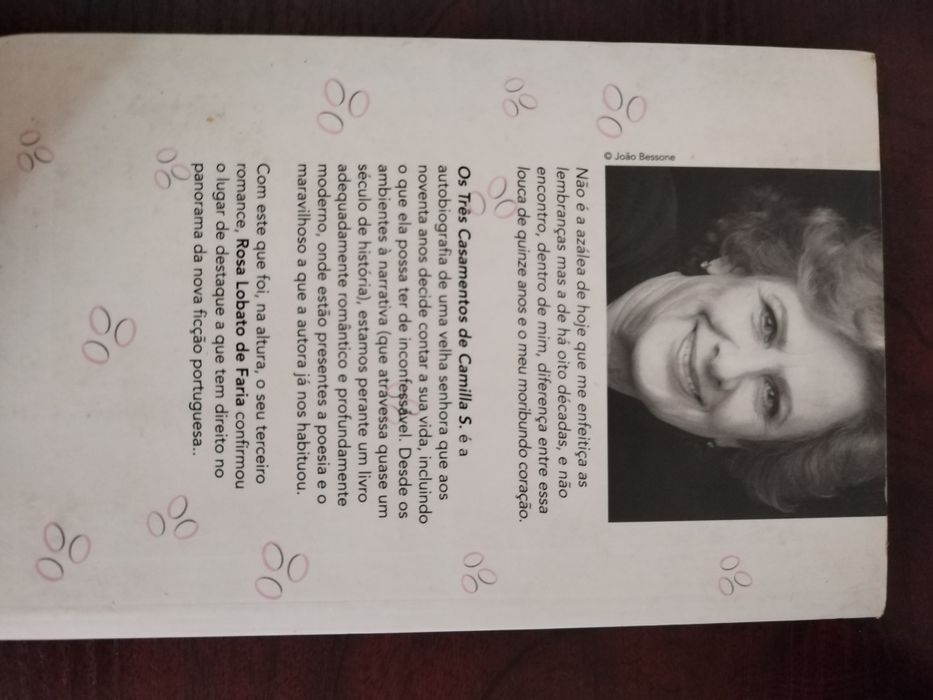 © João Bessone
Não é a azálea de hoje que me enfeitiça as
lembranças mas a de há oito décadas, e não
encontro, dentro de mim, diferença entre essa
louca de quinze anos e o meu moribundo coração.
Os Três Casamentos de Camilla S. é a
autobiografia de uma velha senhora que aos
noventa anos decide contar a sua vida, incluindo
o que ela possa ter de inconfessável. Desde os
ambientes à narrativa (que atravessa quase um
século de história), estamos perante um livro
adequadamente romântico e profundamente
moderno, onde estão presentes a poesia e o
maravilhoso a que a autora já nos habituou.
Com este que foi, na altura, o seu terceiro
romance, Rosa Lobato de Faria confirmou
o lugar de destaque a que tem direito no
panorama da nova ficção portuguesa..